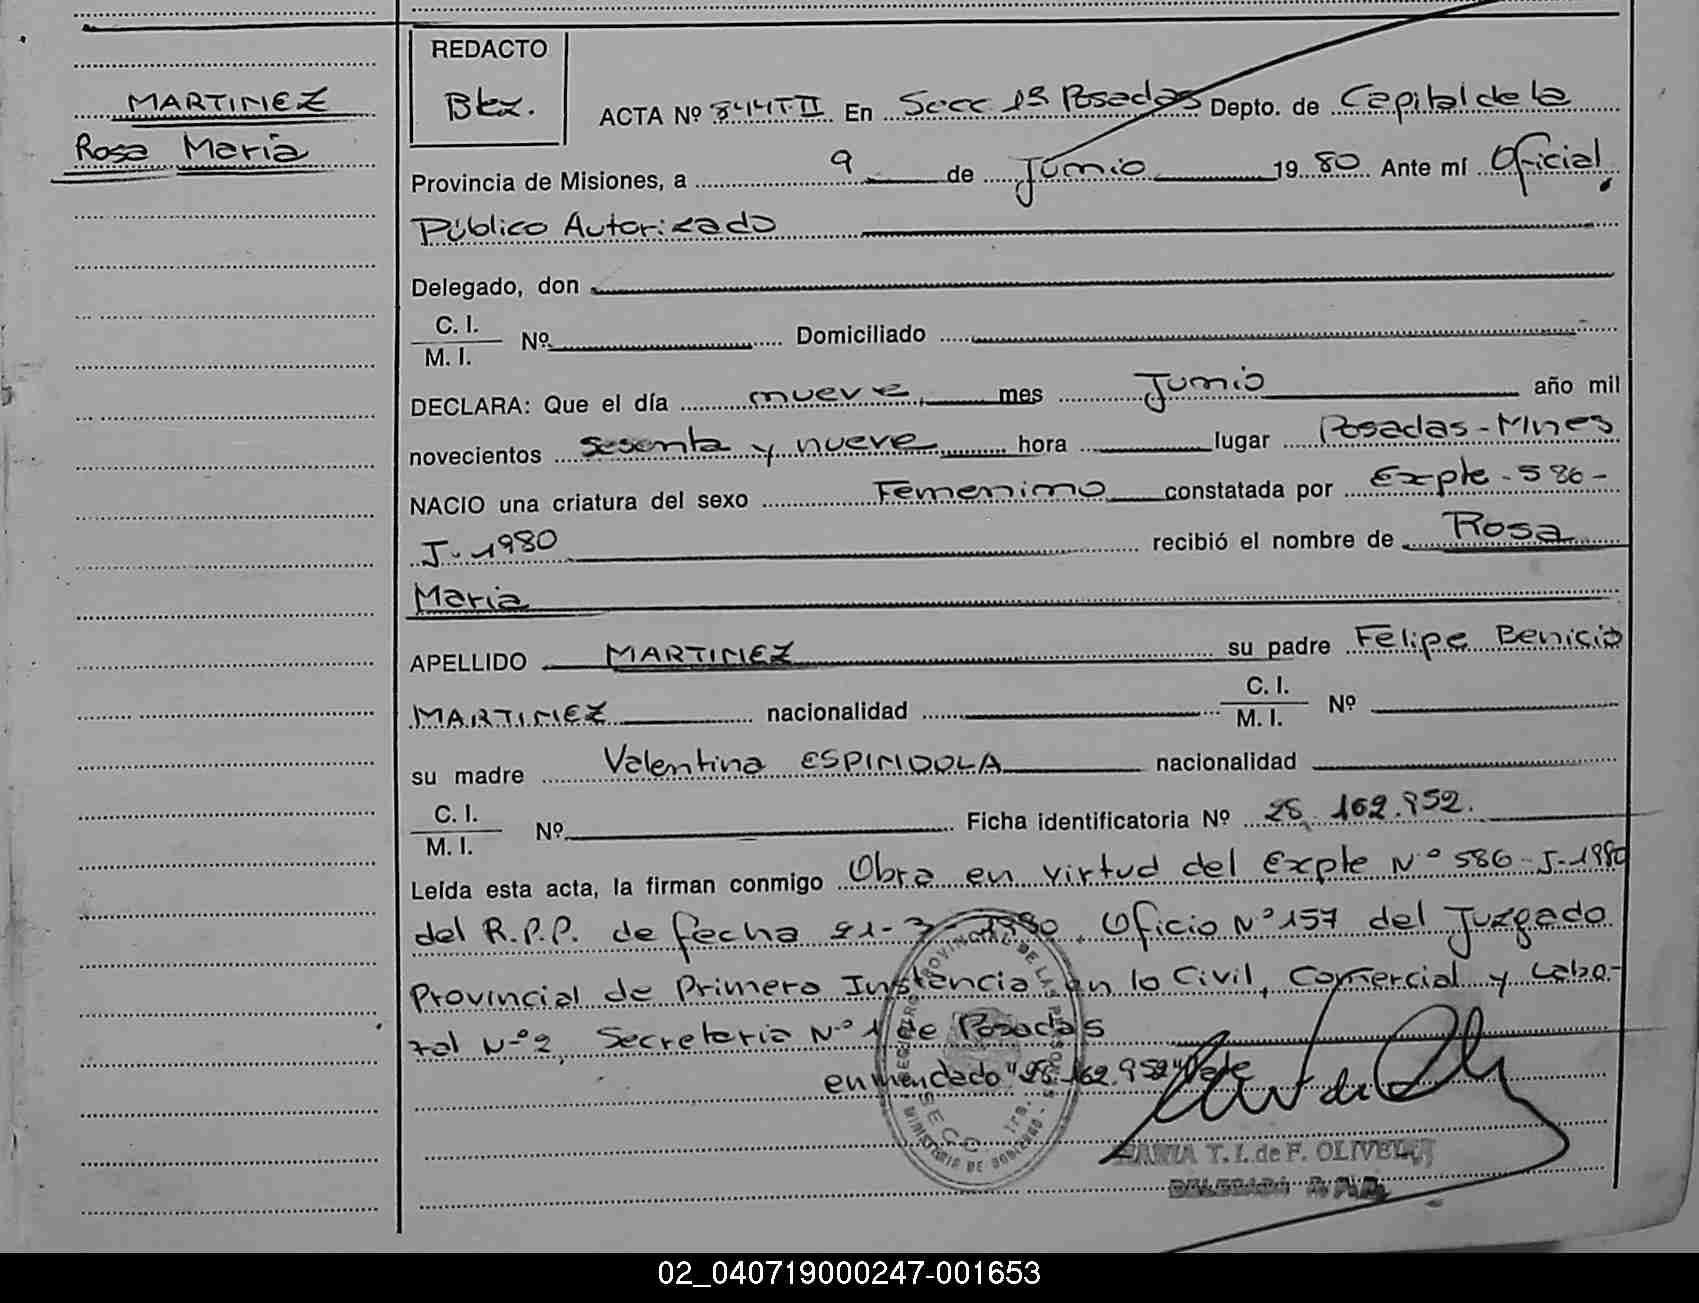 MARTINEZ
Rosa Maria
REDACTO
Btz.
ACTA Nº 844T-II En Secc 1ª Posadas Depto. de Capital de la
Provincia de Misiones, a 9 de Junio 1980 Ante mí Oficial
Público Autorizado
Delegado, don
C. I.
M. I. Nº Domiciliado
DECLARA: Que el día nueve mes Junio año mil
novecientos sesenta y nueve hora lugar Posadas-Mnes
NACIO una criatura del sexo Femenino constatada por Expte-586-
J-1980 recibió el nombre de Rosa
Maria
APELLIDO MARTINEZ su padre Felipe Benicio
MARTINEZ nacionalidad C. I.
M. I. Nº
su madre Valentina ESPINDOLA nacionalidad
C. I.
M. I. Nº Ficha identificatoria Nº 28.162.952.
Leída esta acta, la firman conmigo Obra en virtud del Expte Nº 586-J-1980
del R.P.P. de fecha 21-3-1980. Oficio Nº 157 del Juzgado
Provincial de Primera Instancia en lo Civil, Comercial y Labo-
ral Nº 2, Secretaria Nº 1 de Posadas
enmendado "28.162.952" Vale
REGISTRO PROVINCIAL DE LAS PERSONAS
SECC. 1ra.
MINISTERIO DE GOBIERNO
MARIA T. I. de F. OLIVERA
DELEGADA R.P.P.
02_040719000247-001653